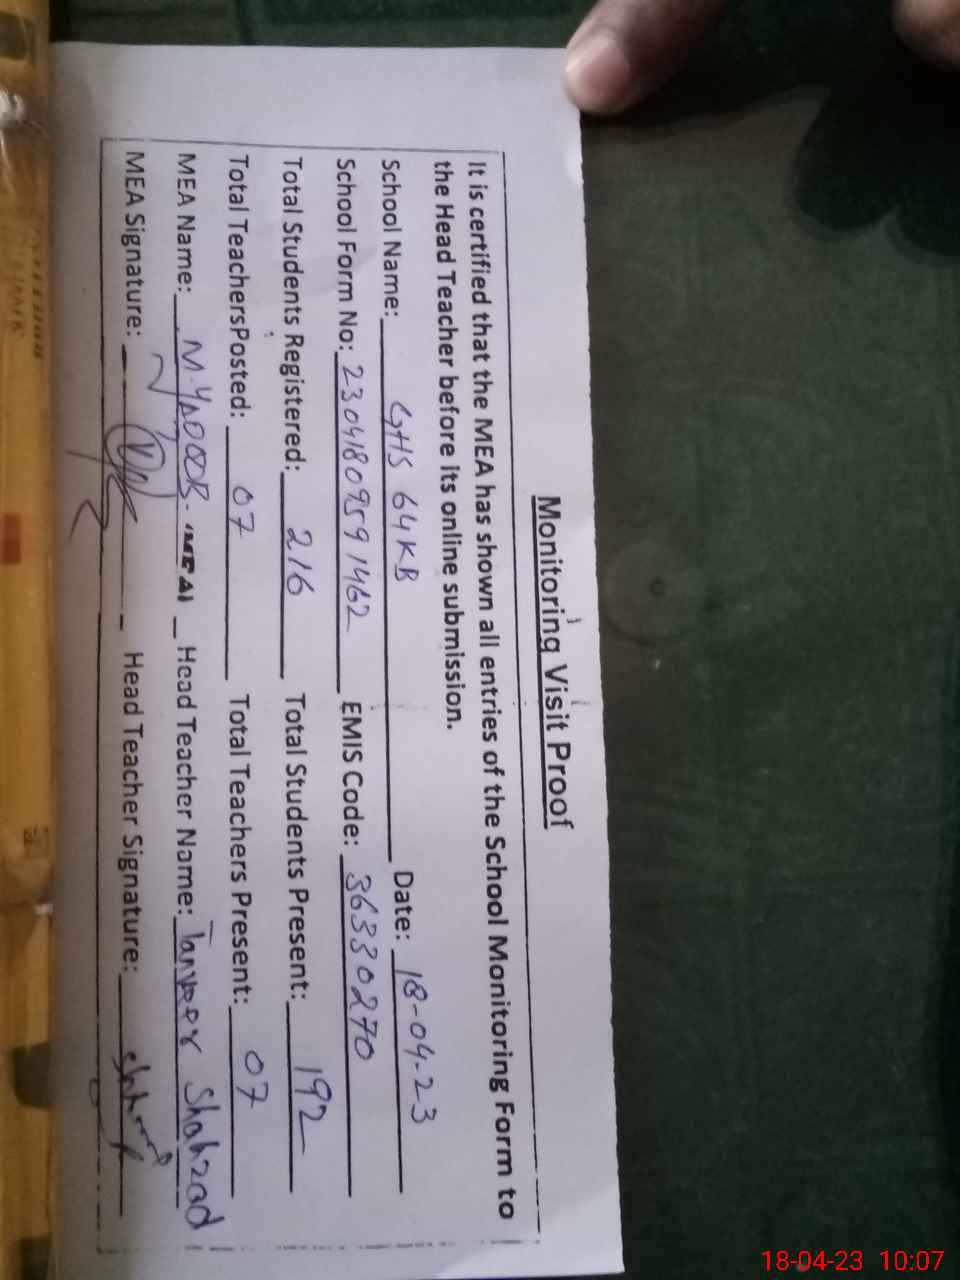 Monitoring Visit Proof
It is certified that the MEA has shown all entries of the School Monitoring Form to
the Head Teacher before its online submission.
School Name: GHS 64KB Date: 18-04-23
School Form No: 23041809591462 EMIS Code: 36330270
Total Students Registered: 216 Total Students Present: 192
Total TeachersPosted: 07 Total Teachers Present: 07
MEA Name: M. YAQOOB. (MEA) Head Teacher Name: Tanveer Shahzad
MEA Signature: Head Teacher Signature:
18-04-23 10:07